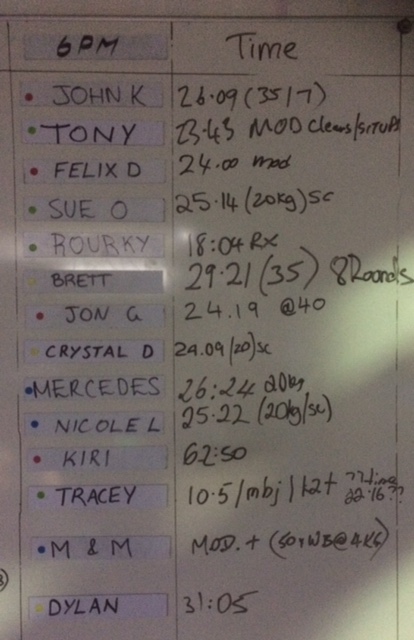 6PM Time
JOHN K 26.09 (35/7)
TONY 23.43 MOD Cleans/SITUPS
FELIX D 24.00 mod
SUE O 25.14 (20kg) SC
ROURKY 18:04 RX
BRETT 29.21 (35) 8 Rounds
JON G 24.19 @40
CRYSTAL D 29.09 (20) SC
MERCEDES 26:24 20kg
NICOLE L 25.22 (20kg/sc)
KIRI 62:50
TRACEY 10.5/mbj/ ??time
22.16??
M & M MOD. +
DYLAN 31:05